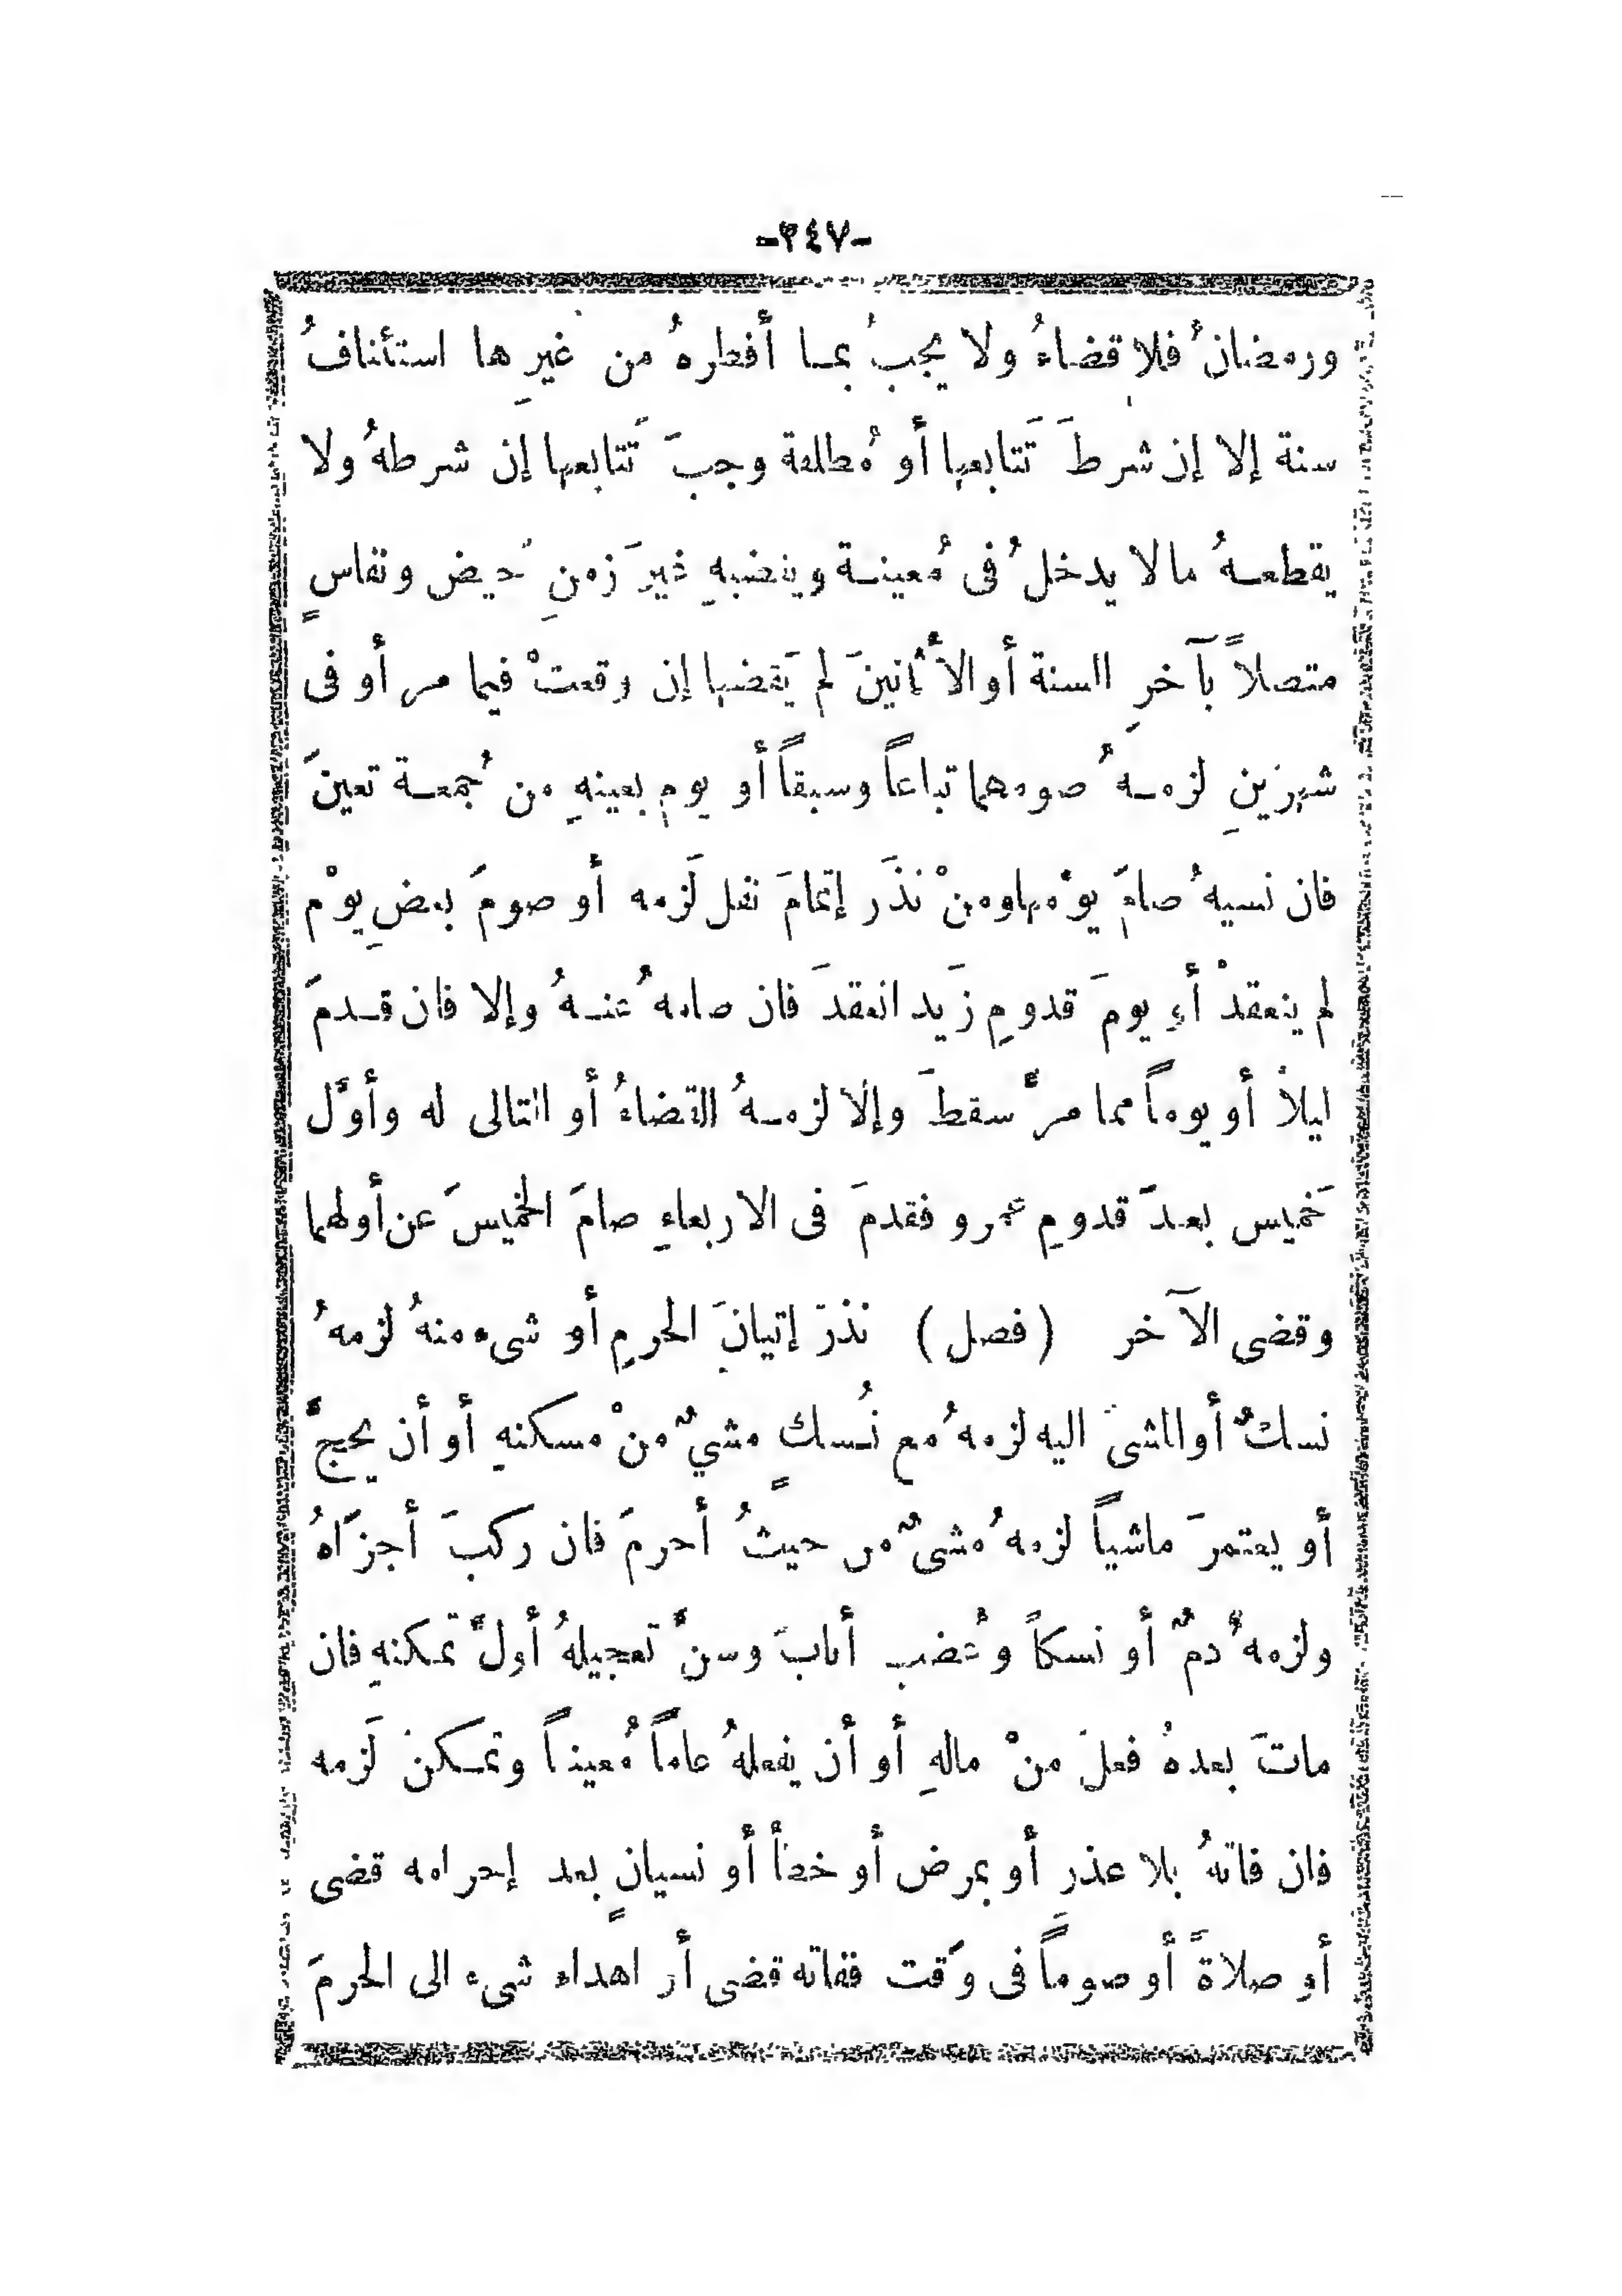 -٣٤٧-
ورمضانُ فلا قضاءُ ولا يجبُ بمـا أفطرهُ من غيرِ ها استئنافُ
سنة إلا إن شرطَ تَتابعها أو مُطلقة وجبَ تَتابعها إن شرطهُ ولا
يقطعـهُ مالا يدخلُ فى مُعينـة ويقضيهِ غيرَ زمنِ حَيض ونفاسٍ
متصلاً بآخرِ السنة أوالأَثانينَ لم يَقضها إن وقعتْ فيما مر أو فى
شهرينِ لزمـهُ صومهما تباعاً وسبقاً أو يومٍ بعينهِ من جُمعـة تعينَ
فان نسيهُ صامَ يوْمهاومنْ نذَر إتمامَ نفل لَزمه أو صومَ بعضِ يوْم
لم ينعقدْ أو يومَ قدومِ زَيد انعقدَ فان صامهُ عنـهُ وإلا فان قـدمَ
ليلاً أو يوماً مما مرَّ سقطَ وإلا لزمـهُ القضاءُ أو التالى له وأوَّل
خَميس بعدَ قدومِ عمرو فقدمَ فى الاربعاءِ صامَ الخميسَ عن أولهما
وقضى الآخر (فصل) نذرَ إتيانَ الحرمِ أو شىء منهُ لزمهُ
نسكٌ أوالمشىَ اليه لزمهُ مع نُسكٍ مشيٌ منْ مسكنهِ أو أن يحجَّ
أو يعتمرَ ماشياً لزمهُ مشىٌ من حيثُ أحرمَ فان ركبَ أجزَاهُ
ولزمهُ دمٌ أو نسكاً وعُضب أنابَ وسنَّ تعجيلهُ أولَ تمكنهِ فان
ماتَ بعدهُ فعلَ منْ مالهِ أو أن يفعلهُ عاماً مُعيناً وتمـكنَ لَزمه
فان فاتهُ بلا عذرٍ أو بمرض أو خطأ أو نسيانٍ بعد إحرامه قضى
أو صلاةً أو صوماً فى وَقت ففاته قضى أو اهداء شىء الى الحرمَ